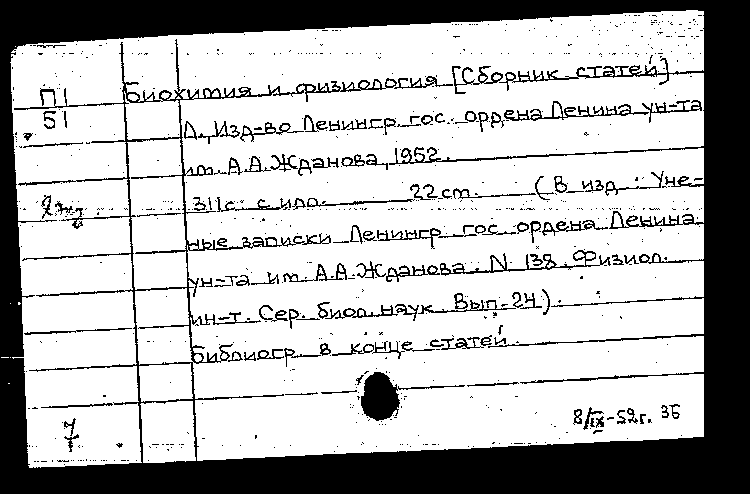 П1
51
Биохимия и физиология [Сборник статей].
Л., Изд-во Ленингр. гос. ордена Ленина ун-та
им. А.А.Жданова, 1952.
311с. с илл. 22 ст. (В изд.: Уче-
2 экз.
ные записки Ленингр. гос. ордена Ленина
ун-та им. А.А.Жданова. N 138. Физиол.
ин-т. Сер. биол. наук. Вып. 24).
Библиогр. в конце статей.
7
8/IX-52г. 35